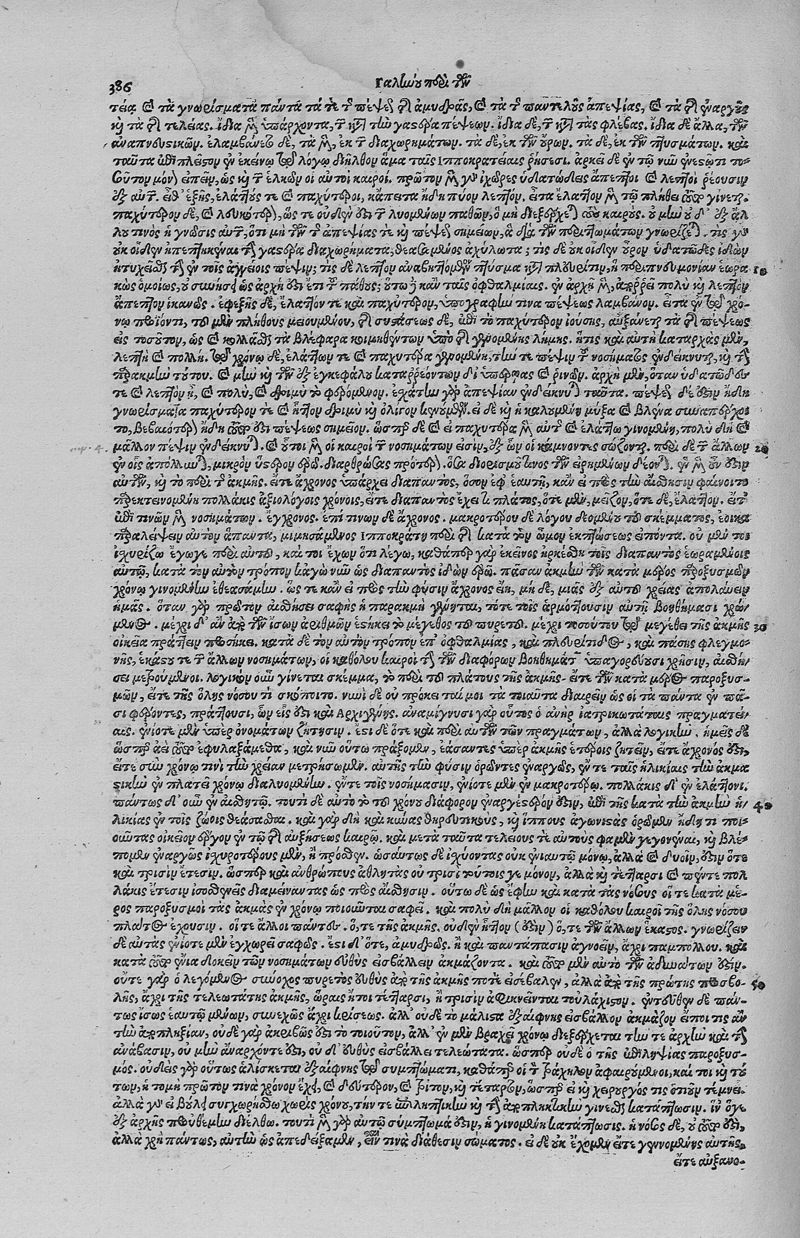 386 Γαληνοῦ περὶ τῶν
τεία. καὶ τὰ γνωρίσματα πάντα τά τε τῆς πέψεως τῆς ἀμυδρᾶς, καὶ τὰ τῆς παντελοῦς ἀπεψίας, καὶ τὰ τῆς ἐναργοῦς
καὶ τὰ τῆς τελείας. ἴδια μὲν ὑπάρχοντα, τῶν κατὰ τὴν γαστέρα πέψεων. ἴδια δὲ, τῶν κατὰ τὰς φλέβας. ἴδια δὲ ἄλλα, τῶν
ἀναπνευστικῶν. ἐλαμβάνετο δὲ, τὰ μὲν, ἐκ τῶν διαχωρημάτων. τὰ δὲ, ἐκ τῶν οὔρων. τὰ δὲ, ἐκ τῶν πτυσμάτων. καὶ
ταῦτα ἐπιπλεῖστον ἐν ἐκείνῳ τῷ λόγῳ διῆλθον ἅμα ταῖς Ἱπποκρατείαις ῥήσεσι. ἀρκεῖ δὲ ἐν τῷ νῦν ἐνεστῶτι το-
σοῦτον μόνον εἰπεῖν, ὡς καὶ τῶν ἑλκῶν οἱ αὐτοὶ καιροί. πρῶτον μὲν γὰρ ἰχῶρες ὑδατώδεις ἄπεπτοι καὶ λεπτοὶ ῥέουσιν
ἐξ αὐτῶν. εἶθ' ἑξῆς, ἐλάττους τε καὶ παχύτεροι, κἄπειτα ἤδη πῦον λεπτόν. εἶτα ἔλαττον μὲν τῷ πλήθει γίνεται.
παχύτερον δὲ, καὶ λευκότερον, ὥς τε οὐδὲν ἔτι τῶν λυομένων παθῶν, ὃ μὴ διεξέρχεται τοὺς καιρούς. οὐ μὴν οὐδ' ἐξ ἄλ
λου τινὸς ἡ γνῶσις αὐτῶν, ὅτι μὴ τῶν τῆς ἀπεψίας τε καὶ πέψεως σημείων, ἃ διὰ τῶν περιττωμάτων γνωρίζεται. τίς γὰρ
οὐκ οἶδεν ἠπεπτηκυίας τῆς γαστρὸς διαχωρήματα, θεασάμενος ἀχύλωτα; τίς δὲ οὐκ οἶδεν οὖρον ὑδατῶδες ἰδὼν
10
κῶς ὁμοίως, οὐ συνῆκεν ὡς ἀρχὴ ἔτι τοῦ πάθους; οὕτω κἀν ταῖς ὀφθαλμίαις. ἐν ἀρχῇ μὲν, ἀπορρεῖ πολὺ καὶ λεπτὸν
ἄπεπτον ἱκανῶς. ἐφεξῆς δὲ, ἔλαττόν τε καὶ παχύτερον, ὑπογραφήν τινα πέψεως λαμβάνον. εἶτα ἐν τῷ χρό-
νῳ προϊόντι, τοῦ μὲν πλήθους μειουμένου, τῆς συστάσεως δὲ, ἐπὶ τὸ παχύτερον ἰούσης, αὐξάνεται τὰ τῆς πέψεως
εἰς τοσοῦτον, ὡς κολλᾶσθαι τὰ βλέφαρα κοιμηθέντων ὑπὸ τῆς γινομένης λήμης. ἥτις καὶ αὐτὴ καταρχὰς μὲν,
λεπτὴ καὶ πολλή. τῷ χρόνῳ δὲ, ἐλάττων τε καὶ παχυτέρα γινομένη, τήν τε πέψιν τοῦ νοσήματος ἐνδείκνυται, καὶ τὴν
παρακμὴν τούτου. καὶ μὴν καὶ τῶν ἐξ ἐγκεφάλου καταρρεόντων δι' ὑπερῴας καὶ ῥινῶν. ἀρχὴ μὲν, ὅταν ὑδατῶδές
τε καὶ λεπτὸν ᾖ, καὶ πολὺ, καὶ δριμὺ τὸ φερόμενον. ἐσχάτην γὰρ ἀπεψίαν ἐνδείκνυται ταῦτα. πέψεως δέ ἐστιν ἤδη
γνωρίσματα παχύτερόν τε καὶ ἧττον δριμὺ καὶ ὀλίγον κενούμενον. εἰ δὲ καὶ καλουμένη μύξα καὶ βλέννα συναπέρχοι
το, βεβαιότερον ἤδη τοῦτό ἐστι πέψεως σημεῖον. ὥσπερ δὲ καὶ εἰ παχυτέρα μὲν αὐτὴ καὶ ἐλάττων γινομένη, πολὺ δὴ καὶ
μᾶλλον πέψιν ἐνδείκνυται. οὗτοι μὲν οἱ καιροὶ τοῦ νοσήματός εἰσιν, ἐξ ὧν οἱ κάμνοντες σώζονται. περὶ δὲ τῶν ἄλλων
20
ἐν οἷς ἀπόλλυνται, μικρὸν ὕστερον ἐρῶ. διαρθρώσας πρότερον. ὅσα διορισμοῦ τινος τῶν εἰρημένων δέονται. ἓν μὲν οὖν ἐστιν
αὐτῶν, καὶ τὸ περὶ τῆς ἀκμῆς. εἴτε ἄχρονος ὑπάρχει διαπαντὸς, ὅσον ἐφ' ἑαυτῇ, κἂν εἰ πρὸς τὴν αἴσθησιν φαίνοιτο
παρεκτεινομένη πολλάκις ἀξιολόγοις χρόνοις, εἴτε διαπαντὸς ἔχει τι πλάτος, ὅτε μὲν, μεῖζον, ὅτε δὲ, ἔλαττον. εἴτ'
ἐπὶ τινῶν μὲν νοσημάτων. ἔγχρονος. ἐπί τινων δὲ ἄχρονος. μακροτέρου δὲ λόγου δεομένου τοῦ σκέμματος, ἔοικα
παραλείψειν αὐτὸν ἅπαντα, μιμησάμενος Ἱπποκράτην περὶ τῆς κατὰ τὸν ὦμον ἐκπτώσεως εἰπόντα. οὐ μὲν τοι
ἰσχυρίζω ἔγωγε περὶ αὐτοῦ, καί τοι ἔχων ὅτι λέγω, καθάπερ γὰρ ἐκεῖνος ἠρκέσθη τοῖς διαπαντὸς ἑωραμένοις
αὐτῷ, κατὰ τὸν αὐτὸν τρόπον κἀγὼ νῦν ὡς διαπαντὸς εἶδον ἐρῶ. πᾶσαν ἀκμὴν τῶν κατὰ μέρος παροξυσμῶν
χρόνῳ γινομένην ἐθεασάμην. ὥς τε κἂν εἰ πρὸς τὴν φύσιν ἄχρονος εἴη, μηδὲ, μιᾶς ἐξ αὐτοῦ χρείας ἀπολαύειν
ἡμᾶς. ὅταν γὰρ πρῶτον αἰσθήσει σαφὴς ἡ παρακμὴ γένηται, τότε τοῖς ἁρμόττουσιν αὐτῇ βοηθήμασι χρώ-
μεθα. μέχρι δ' ἂν ἐκ τῶν ἴσων ἀριθμῶν ἑστήκει τὸ μέγεθος τοῦ πυρετοῦ. μέχρι τοσούτου τῷ μεγέθει τῆς ἀκμῆς
30
οἰκεῖα πράττειν προσήκει. κατὰ δὲ τὸν αὐτὸν τρόπον ἐπ' ὀφθαλμίας, καὶ πλευρίτιδος, καὶ πάσης φλεγμο-
νῆς, ἑκάστου τε τῶν ἄλλων νοσημάτων, οἱ καθόλου καιροὶ τὴν τῶν διαφόρων βοηθημάτων ὑπαγορεύουσι χρῆσιν, αἰσθή-
σει μετρούμενοι. λογικὸν οὖν γίνεται σκέμμα, τὸ περὶ τοῦ πλάτους τῆς ἀκμῆς· εἴτε τῶν κατὰ μέρος παροξυσ-
μῶν, εἴτε τῆς ὅλης νόσου τὶς σκόποιτο. νυνὶ δὲ οὐ πρόκειταί μοι τὰ τοιαῦτα διαιρεῖν ὡς οἱ τὰ πάντα ἐν πᾶ-
σι φέροντες, πράττουσι, ὧν εἷς ἐστι καὶ Ἀρχιγένης. ἀναμίγνυσι γὰρ οὗτος ὁ ἀνὴρ ἰατρικωτάτους πραγματεί-
αις. ἐνίοτε μὲν ὑπὲρ ὀνομάτων ζήτησιν. ἔστι δὲ ὅτε καὶ περὶ αὐτῶν τῶν πραγμάτων, ἀλλὰ λογικῶν. ἡμεῖς δὲ
ὥσπερ ἀεὶ τοῦτο ἐφυλαξάμεθα, καὶ νῦν οὕτω πράξομεν, ἐάσαντες ὑπὲρ ἀκμῆς ἑτέροις ζητεῖν, εἴτε ἄχρονός ἐστι,
εἴτε σὺν χρόνῳ τινὶ τὴν χρείαν μετρήσωμεν. αὐτῆς τὴν φύσιν ὁρῶντες ἐναργῶς, ἔν τε ταῖς ἡλικίαις τὴν ἀκμα
στικὴν ἐν πλάτει χρόνῳ διαλυομένην. ἔν τε τοῖς νοσήμασιν, ἐνίοτε μὲν ἐν μακροτέρῳ. πολλάκις δ' ἐν ἐλάττονι.
πάντως δ' οὖν ἐν αἰσθητῷ. τουτὶ δὲ αὐτὸ τὸ τοῦ χρόνου διάφορον ἐναργέστερόν ἐστιν, ἐπὶ τῆς κατὰ τὴν ἀκμὴν ἡ-
40
λικίας ἐν τοῖς ζῴοις θεάσασθαι. καὶ γὰρ δὴ καὶ κύνας θηρευτικοὺς, καὶ ἵππους ἀγωνιστὰς ὁρῶμεν ἤδη τι ποι-
οῦντας οἰκεῖον ἔργον ἐν τῷ τῆς αὐξήσεως καιρῷ. καὶ μετὰ ταῦτα τελείους τε αὐτοὺς φαμὲν γεγονέναι, καὶ βλέ-
πομεν ἐναργῶς ἰσχυροτέρους μὲν, ἢ πρόσθεν. ὡσαύτως δὲ ἰσχύοντας οὐκ ἐνιαυτῷ μόνῳ, ἀλλὰ καὶ δυοῖν, ἔστιν ὅτε
καὶ τρισὶν ἔτεσιν. ὥσπερ καὶ ἀνθρώπους ἀθλητὰς οὐ τρισὶ τούτοις γε μόνον, ἀλλὰ καὶ τέτταρσι καὶ πέντε πολ
λάκις ἔτεσιν ἰσοσθενεῖς διαμείναντας ὡς πρὸς αἴσθησιν. οὕτω δὲ ὡς ἔφην καὶ κατὰ τὰς νόσους οἵ τε κατὰ μέ-
ρος παροξυσμοὶ τὰς ἀκμὰς ἐν χρόνῳ ποιοῦνται σαφεῖ. καὶ πολὺ δὴ μᾶλλον οἱ καθόλου καιροὶ τῆς ὅλης νόσου
πλάτος ἔχουσιν. οἵ τε ἄλλοι πάντες. ὅ, τε τῆς ἀκμῆς. οὐδὲν ἧττον (ἔστιν) ὅ, τε τῶν ἄλλων ἕκαστος. γνωρίζειν
δὲ αὐτὰς ἐνίοτε μὲν ἐγχωρεῖ σαφῶς. ἔστι δ' ὅτε, ἀμυδρῶς. ἢ καὶ παντάπασιν ἀγνοεῖν, ἄχρι παμπόλλου. καὶ
κατὰ τοῦτο ἔνια δοκεῖν τῶν νοσημάτων εὐθὺς εἰσβάλλειν ἀκμάζοντα. καὶ τοῦτο μὲν αὐτὸ τῶν ἀδυνάτων ἐστίν.
οὔτε γὰρ ὁ λεγόμενος σύνοχος πυρετὸς εὐθὺς ἀπὸ τῆς ἀκμῆς ποτὲ εἰσέβαλεν, ἀλλὰ ἀπὸ τῆς πρώτης προσβο-
50
λῆς, ἄχρι τῆς τελεωτάτης ἀκμῆς, ὧραις ἤτοι τέτταρσι, ἢ τρισὶν ἀφικνεῖται τοὐλάχιστον. ἐντεῦθεν δὲ πάν-
τως ἴσως ἑαυτῷ μένων, συνεχῶς ἄχρι κρίσεως. ἀλλ' οὐδὲ τὸ μάλιστα ἐξαίφνης εἰσβάλλον ἀκμάζον εἴποι τις ἂν
τὴν ἀποπληξίαν, οὐδὲ γὰρ ἀκριβῶς ἐστι τὸ τοιοῦτον, ἀλλ' ἐν μὲν βραχεῖ χρόνῳ διεξέρχεται τήν τε ἀρχὴν καὶ τὴν
ἀνάβασιν, οὐ μὴν ἄναρχόν τέ ἐστι, οὐδ' εὐθὺς εἰσβάλλει τελεώτατα. ὥσπερ οὐδὲ ὁ τῆς ἐπιληψίας παροξυσ-
μός. οὐδεὶς γὰρ οὕτως ἁλίσκεται ἐξαίφνης τῷ συμπτώματι, καθάπερ οἱ τὸν τράχηλον ἀφαιρούμενοι, καί τοι καὶ τού
των, ἡ τομὴ πρῶτόν τινα χρόνον ἔχει, καὶ δεύτερον, καὶ τρίτον, καὶ τέταρτον, ὥσπερ εἰ καὶ χειρουργός τις ὁτιοῦν τέμνει.
ἀλλὰ γὰρ εἰ βούλει συγχωρείσθω χωρὶς χρόνου, τήν τε ἐπιληπτικὴν καὶ τὴν ἀποπληκτικὴν γίνεσθαι κατάπτωσιν. ἵν' ὅπερ
ἐξ ἀρχῆς προὐθέμην διέλθω. τουτὶ μὲν γὰρ αὐτὸ σύμπτωμά ἐστιν, ἡ γινομένη κατάπτωσις. ἡ νόσος δὲ, οὐ τοῦτό ἐστι,
ἀλλὰ χρὴ πάντως, αὐτὴν ὡς ἀπεδείξαμεν, εἶναί τινα διάθεσιν σώματος. εἰ δὲ οὐκ ἔχομεν εἴτε γεννομένης αὐτῆς,
εἴτε αὐξανο-